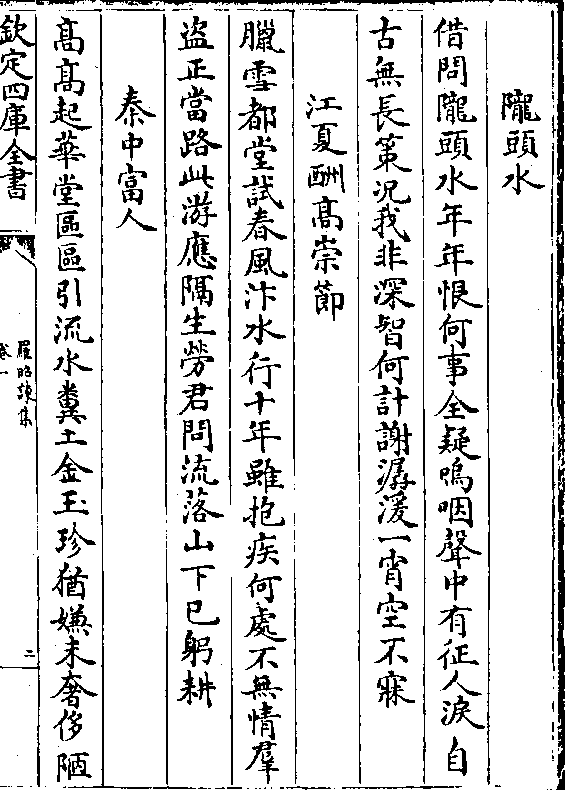 隴頭水
借問隴頭水年年恨何事全疑嗚咽聲中有征人淚自
古無長策況我非深智何計謝潺湲一宵空不寐
江夏酬高崇節
臘雪都堂試春風汴水行十年雖抱疾何處不無情羣
盜正當路此游應隔生勞君問流落山下已躬耕
秦中富人
高高起華堂區區引流水糞土金玉珍猶嫌未奢侈陋
欽定四庫全書
羅昭諫集
卷一
二